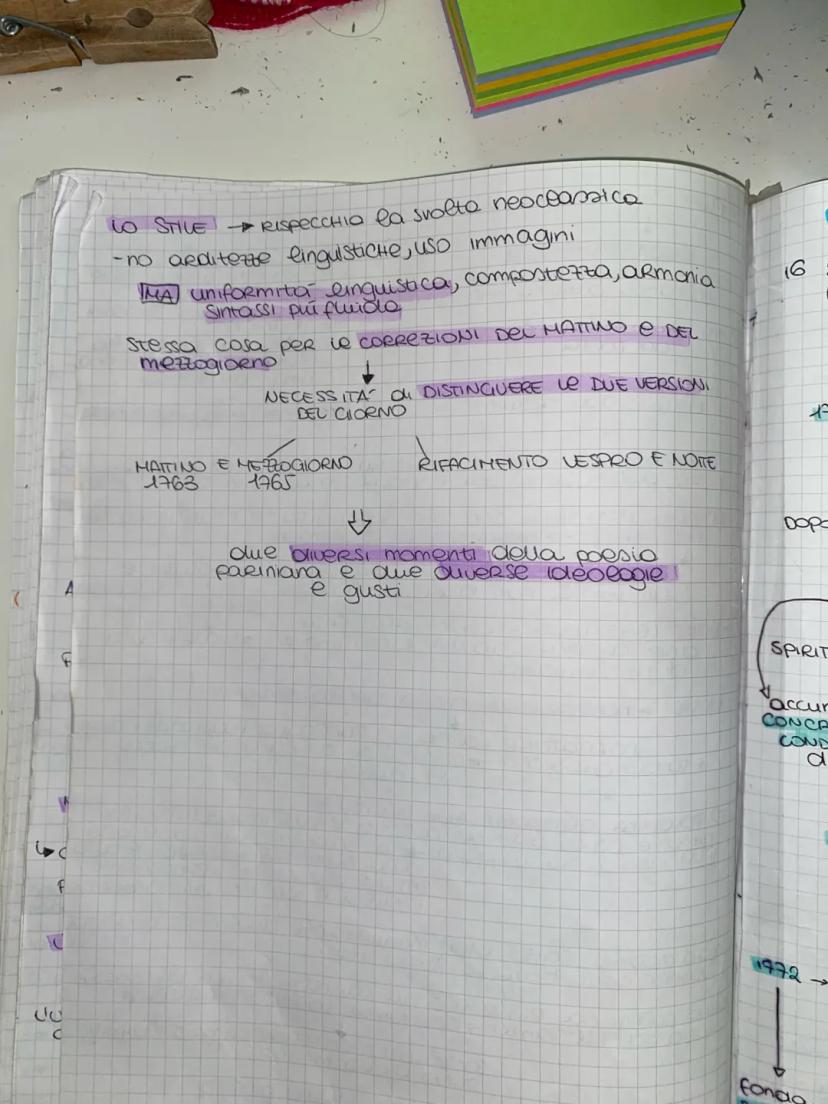 LO STILE → RISPECCHIA la svolta neoclassica
- no arditezze linguistiche, uso immagini
MA uniformità linguistica, compostezza, armonia
sintassi più fluida
stessa cosa per le CORREZIONI DEL MATTINO e DEL
mezzogiorno
NECESSITÀ di DISTINGUERE le DUE VERSIONI
DEL GIORNO
MATTINO E MEZZOGIORNO
1763 1765
RIFACIMENTO VESPRO E NOTTE
due diversi momenti della poesia
pariniana e due diverse ideologie
e gusti
16
DOPO
SPIRIT
accur
CONCR
COND
d
1972 →
fondo